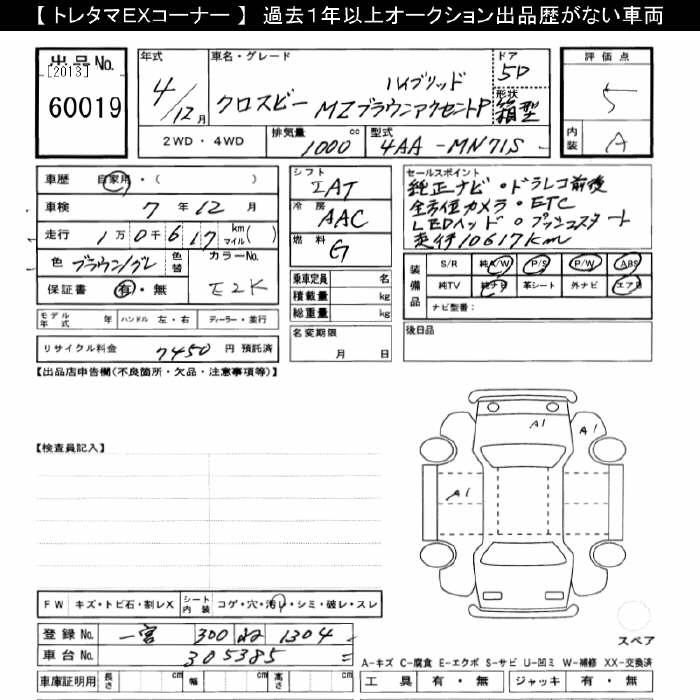 【 トレタマEXコーナー 】 過去1年以上オークション出品歴がない車両
出品No.
[2013]
60019
年式
4/12月
車名・グレード
ハイブリッド
クロスビー MZブラウンアクセントP
ドア
5D
形状
箱型
2WD・4WD
排気量 1000 cc
型式 4AA-MN71S
評価点
5
内装 A
車歴 自家用・( )
車検 7年12月
走行 1万0千617 km マイル ( )
色 ブラウン/グレ 色替
カラーNo.
E2K
保証書 有・無
モデル年式 年 ハンドル 左・右 ディーラー・並行
リサイクル料金 7450円 預託済
シフト
IAT
冷房
AAC
燃料
G
乗車定員 名
積載量 kg
総重量 kg
名変期限
月 日
セールスポイント
純正ナビ・ドラレコ前後
全方位カメラ・ETC
LEDヘッド・プッシュスタート
走行10617km
装備品
S/R 純A/W P/S P/W ABS
純TV 純ナビ 革シート 外ナビ エアB
ナビ型番:
後日品
【出品店申告欄(不良箇所・欠品・注意事項等)】
【検査員記入】
A1
A1
A1
FW キズ・トビ石・割レX
シート内装 コゲ・穴・汚レ・シミ・破レ・スレ
登録No. 一宮 300 1304
車台No. 305385
車庫証明用 長さ cm 幅 cm 高さ cm
スペア
A-キズ C-腐食 E-エクボ S-サビ U-凹ミ W-補修 XX-交換済
工具 有・無 ジャッキ 有・無